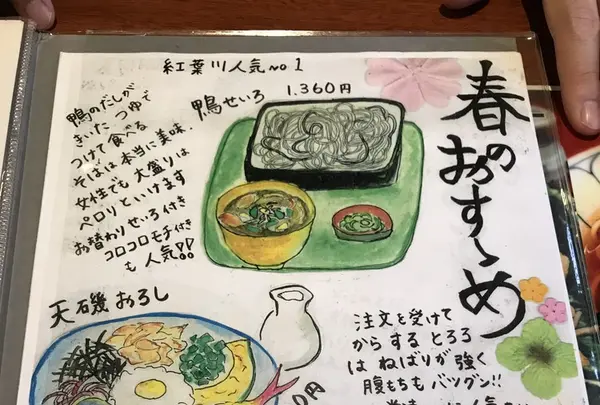 紅葉川人気No1
春の
おすすめ
鴨せいろ 1.360円
鴨のだしが
きいた つゆで
つけて食べる
そばは本当に美味.
女性でも大盛りは
ペロリといけます
お替わりせいろ付き
コロコロモチ付き
も人気!!
天磯おろし
注文を受けて
からする とろろ
は ねばりが強く
腹もちも バツグン!!